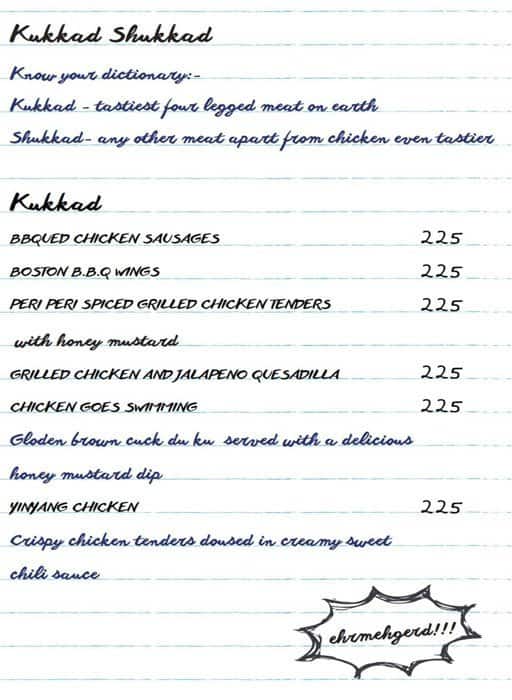 Kukkad Shukkad
Know your dictionary:-
Kukkad - tastiest four legged meat on earth
Shukkad- any other meat apart from chicken even tastier
Kukkad
BBQUED CHICKEN SAUSAGES 225
BOSTON B.B.Q WINGS 225
PERI PERI SPICED GRILLED CHICKEN TENDERS 225
with honey mustard
GRILLED CHICKEN AND JALAPENO QUESADILLA 225
CHICKEN GOES SWIMMING 225
Gloden brown cuck du ku served with a delicious
honey mustard dip
YINYANG CHICKEN 225
Crispy chicken tenders doused in creamy sweet
chili sauce
ehrmehgerd!!!